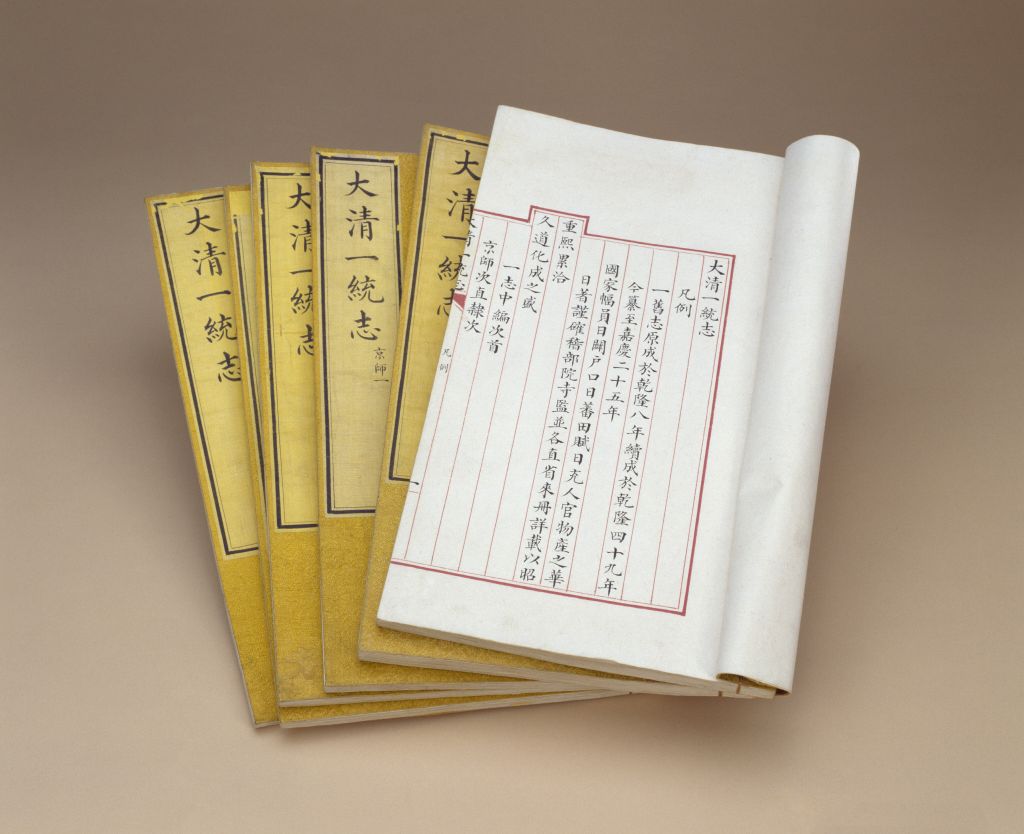 大清一統志
凡例
一舊志原成於乾隆八年續成於乾隆四十九年
今纂至嘉慶二十五年
國家幅員日闢戶口日蕃田賦日充人官物產之華
日著謹確稽部院寺監並各直省來冊詳載以昭
重熙累洽
久道化成之盛
一志中編次首
京師次直隸次
大清一統志
凡例
一
大清一統志
大清一統志
京師一
大清一統志
大清一統志